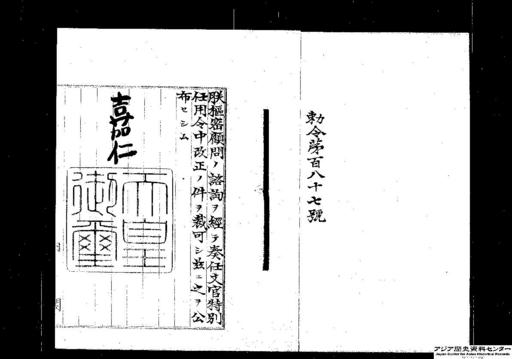 勅令第百八十七號
朕樞密顧問ノ諮詢ヲ經テ奏任文官特別
任用令中改正ノ件ヲ裁可シ茲ニ之ヲ公
布セシム
嘉仁
天皇
御璽
アジア歴史資料センター
Japan Center for Asian Historical Records